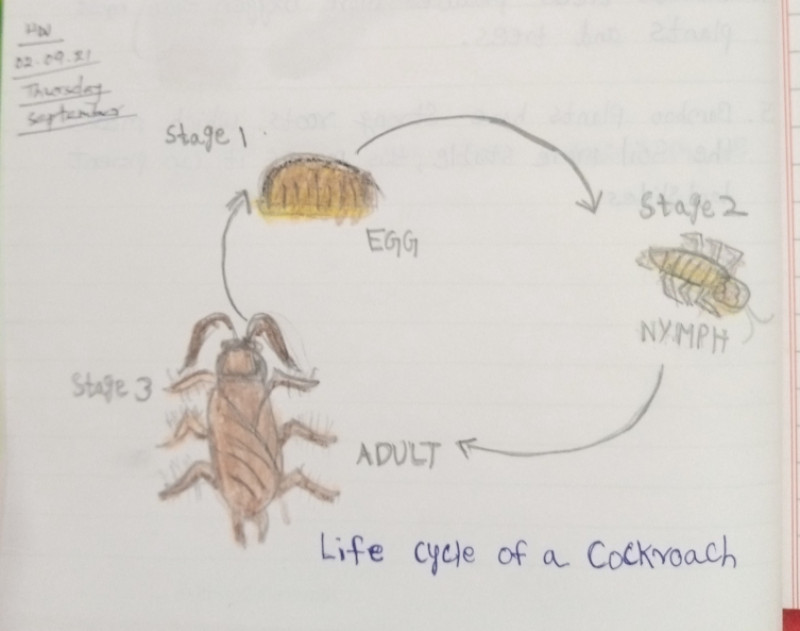 HW
02.09.21
Thursday
September
Stage 1
EGG
Stage 2
NYMPH
Stage 3
ADULT
Life cycle of a Cockroach